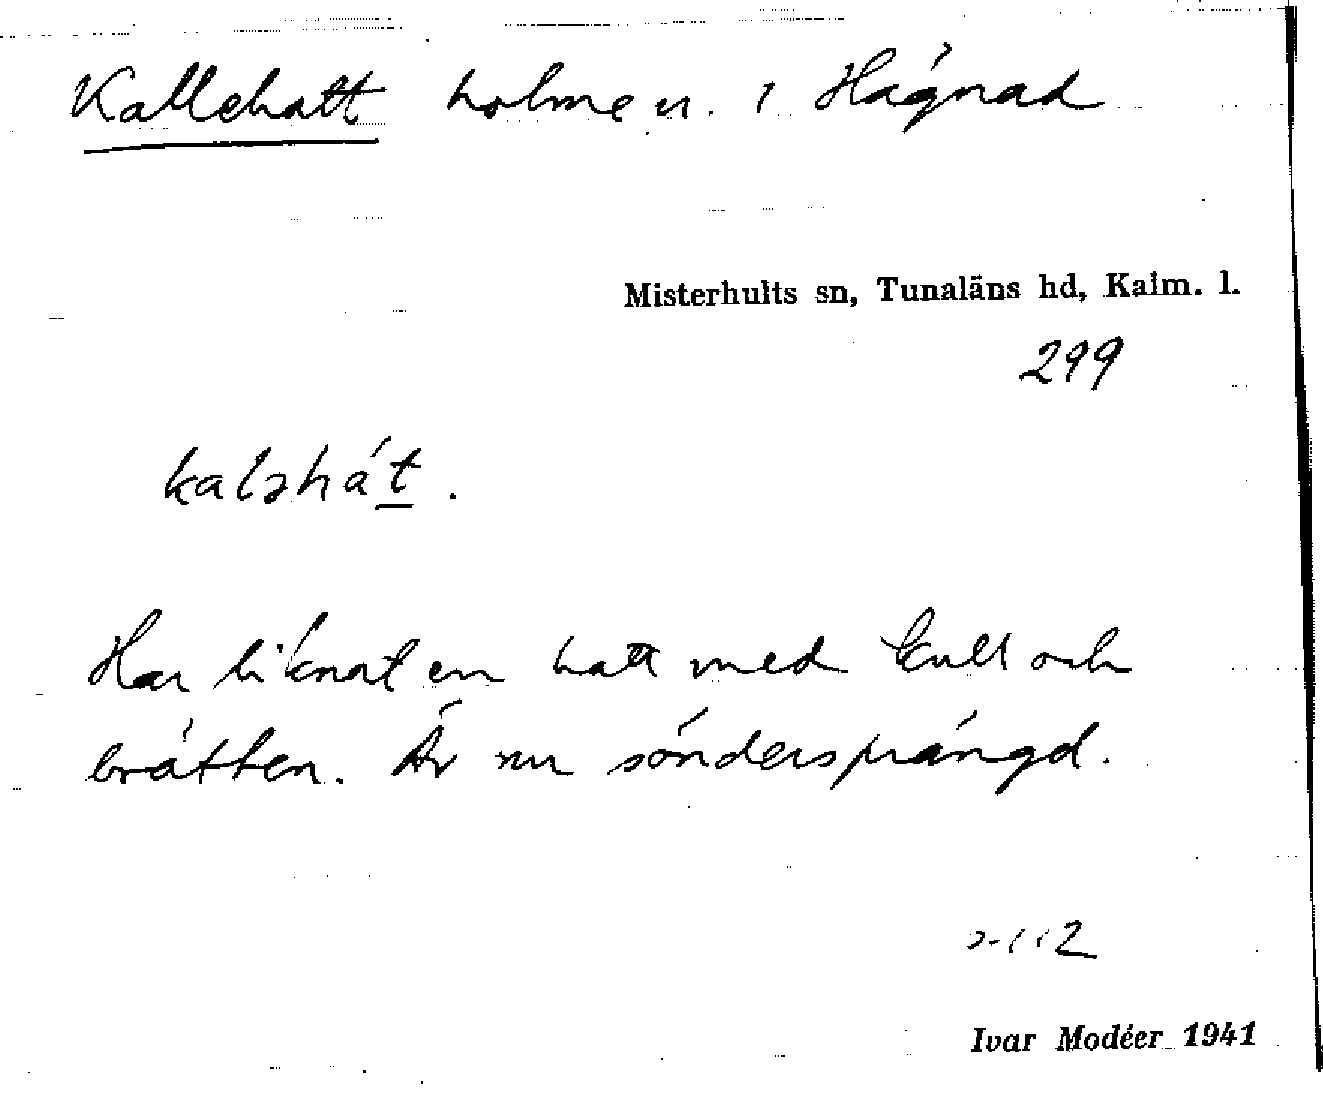 Kallehatt holme u. i Hägnad
Misterhults sn, Tunaläns hd, Kalm. l.
299
kaləhát.
Har liknat en hatt med kull och
brätten. Är nu söndersprängd.
Ivar Modéer 1941